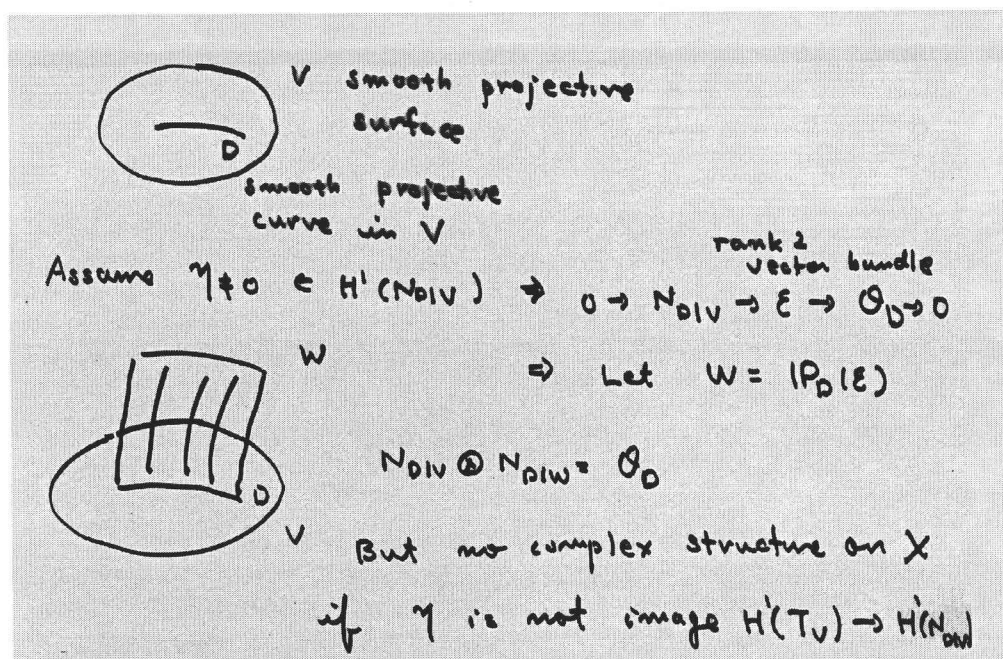 V smooth projective
surface
D
smooth projective
curve in V
rank 2
vector bundle
Assume η≠0 ∈ H'(N_{D|V}) → 0 → N_{D|V} → ε → O_D → 0
W
⇒ Let W = |P_D(ε)
N_{D|V} ⊗ N_{D|W} = O_D
D
V
But no complex structure on X
if η is not image H'(T_V) → H'(N_{D|V})